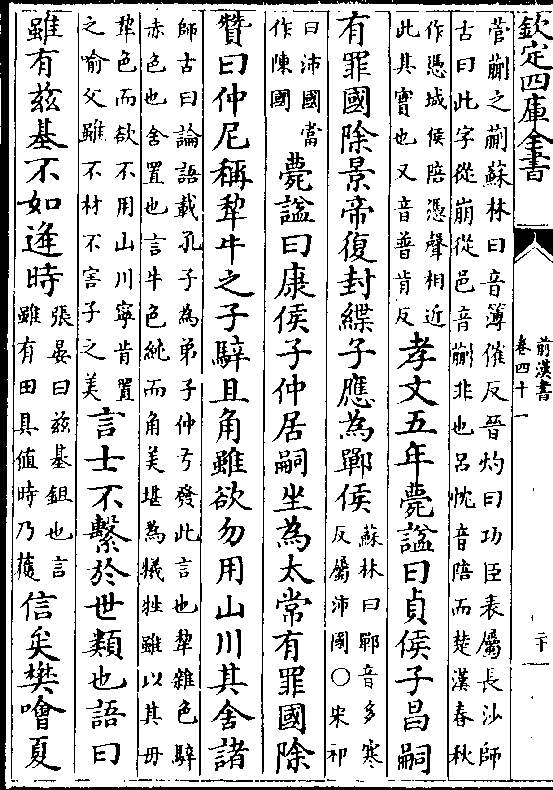 欽定四庫全書
前漢書
卷四十一
二十
菅蒯之蒯蘇林曰音簿催反晉灼曰功臣表屬長沙師
古曰此字從崩從邑音蒯非也呂忱音陪而楚漢春秋
作憑城侯陪憑聲相近
此其實也又音普肯反
孝文五年薨諡曰貞侯子昌嗣
有罪國除景帝復封緤子應為鄲侯
蘇林曰鄲音多寒
反屬沛國○宋祁
曰沛國當
作陳國
薨諡曰康侯子仲居嗣坐為太常有罪國除
贊曰仲尼稱犂牛之子騂且角雖欲勿用山川其舍諸
師古曰論語載孔子為弟子仲弓發此言也犂雜色騂
赤色也舍置也言牛色純而角美堪為犧牲雖以其母
犂色而欲不用山川寧肯置
之喻父雖不材不害子之美
言士不繫於世類也語曰
雖有兹基不如逢時
張晏曰兹基鉏也言
雖有田具值時乃獲
信矣樊噲夏